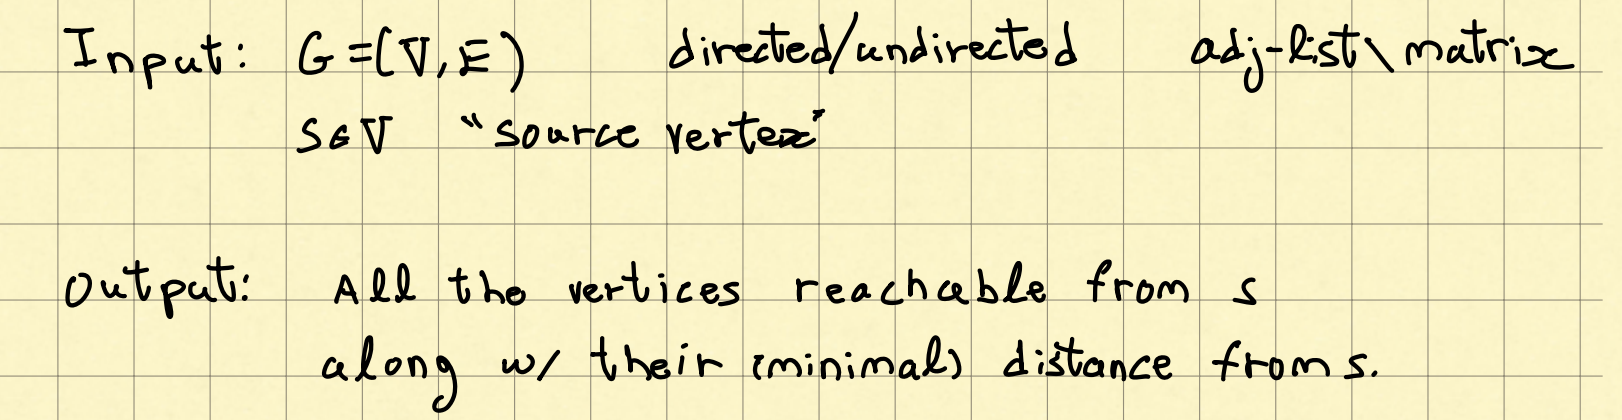 Input: G=(V,E) directed/undirected adj-list\matrix
s∈V "source vertex"
output: All the vertices reachable from s
along w/ their (minimal) distance from s.